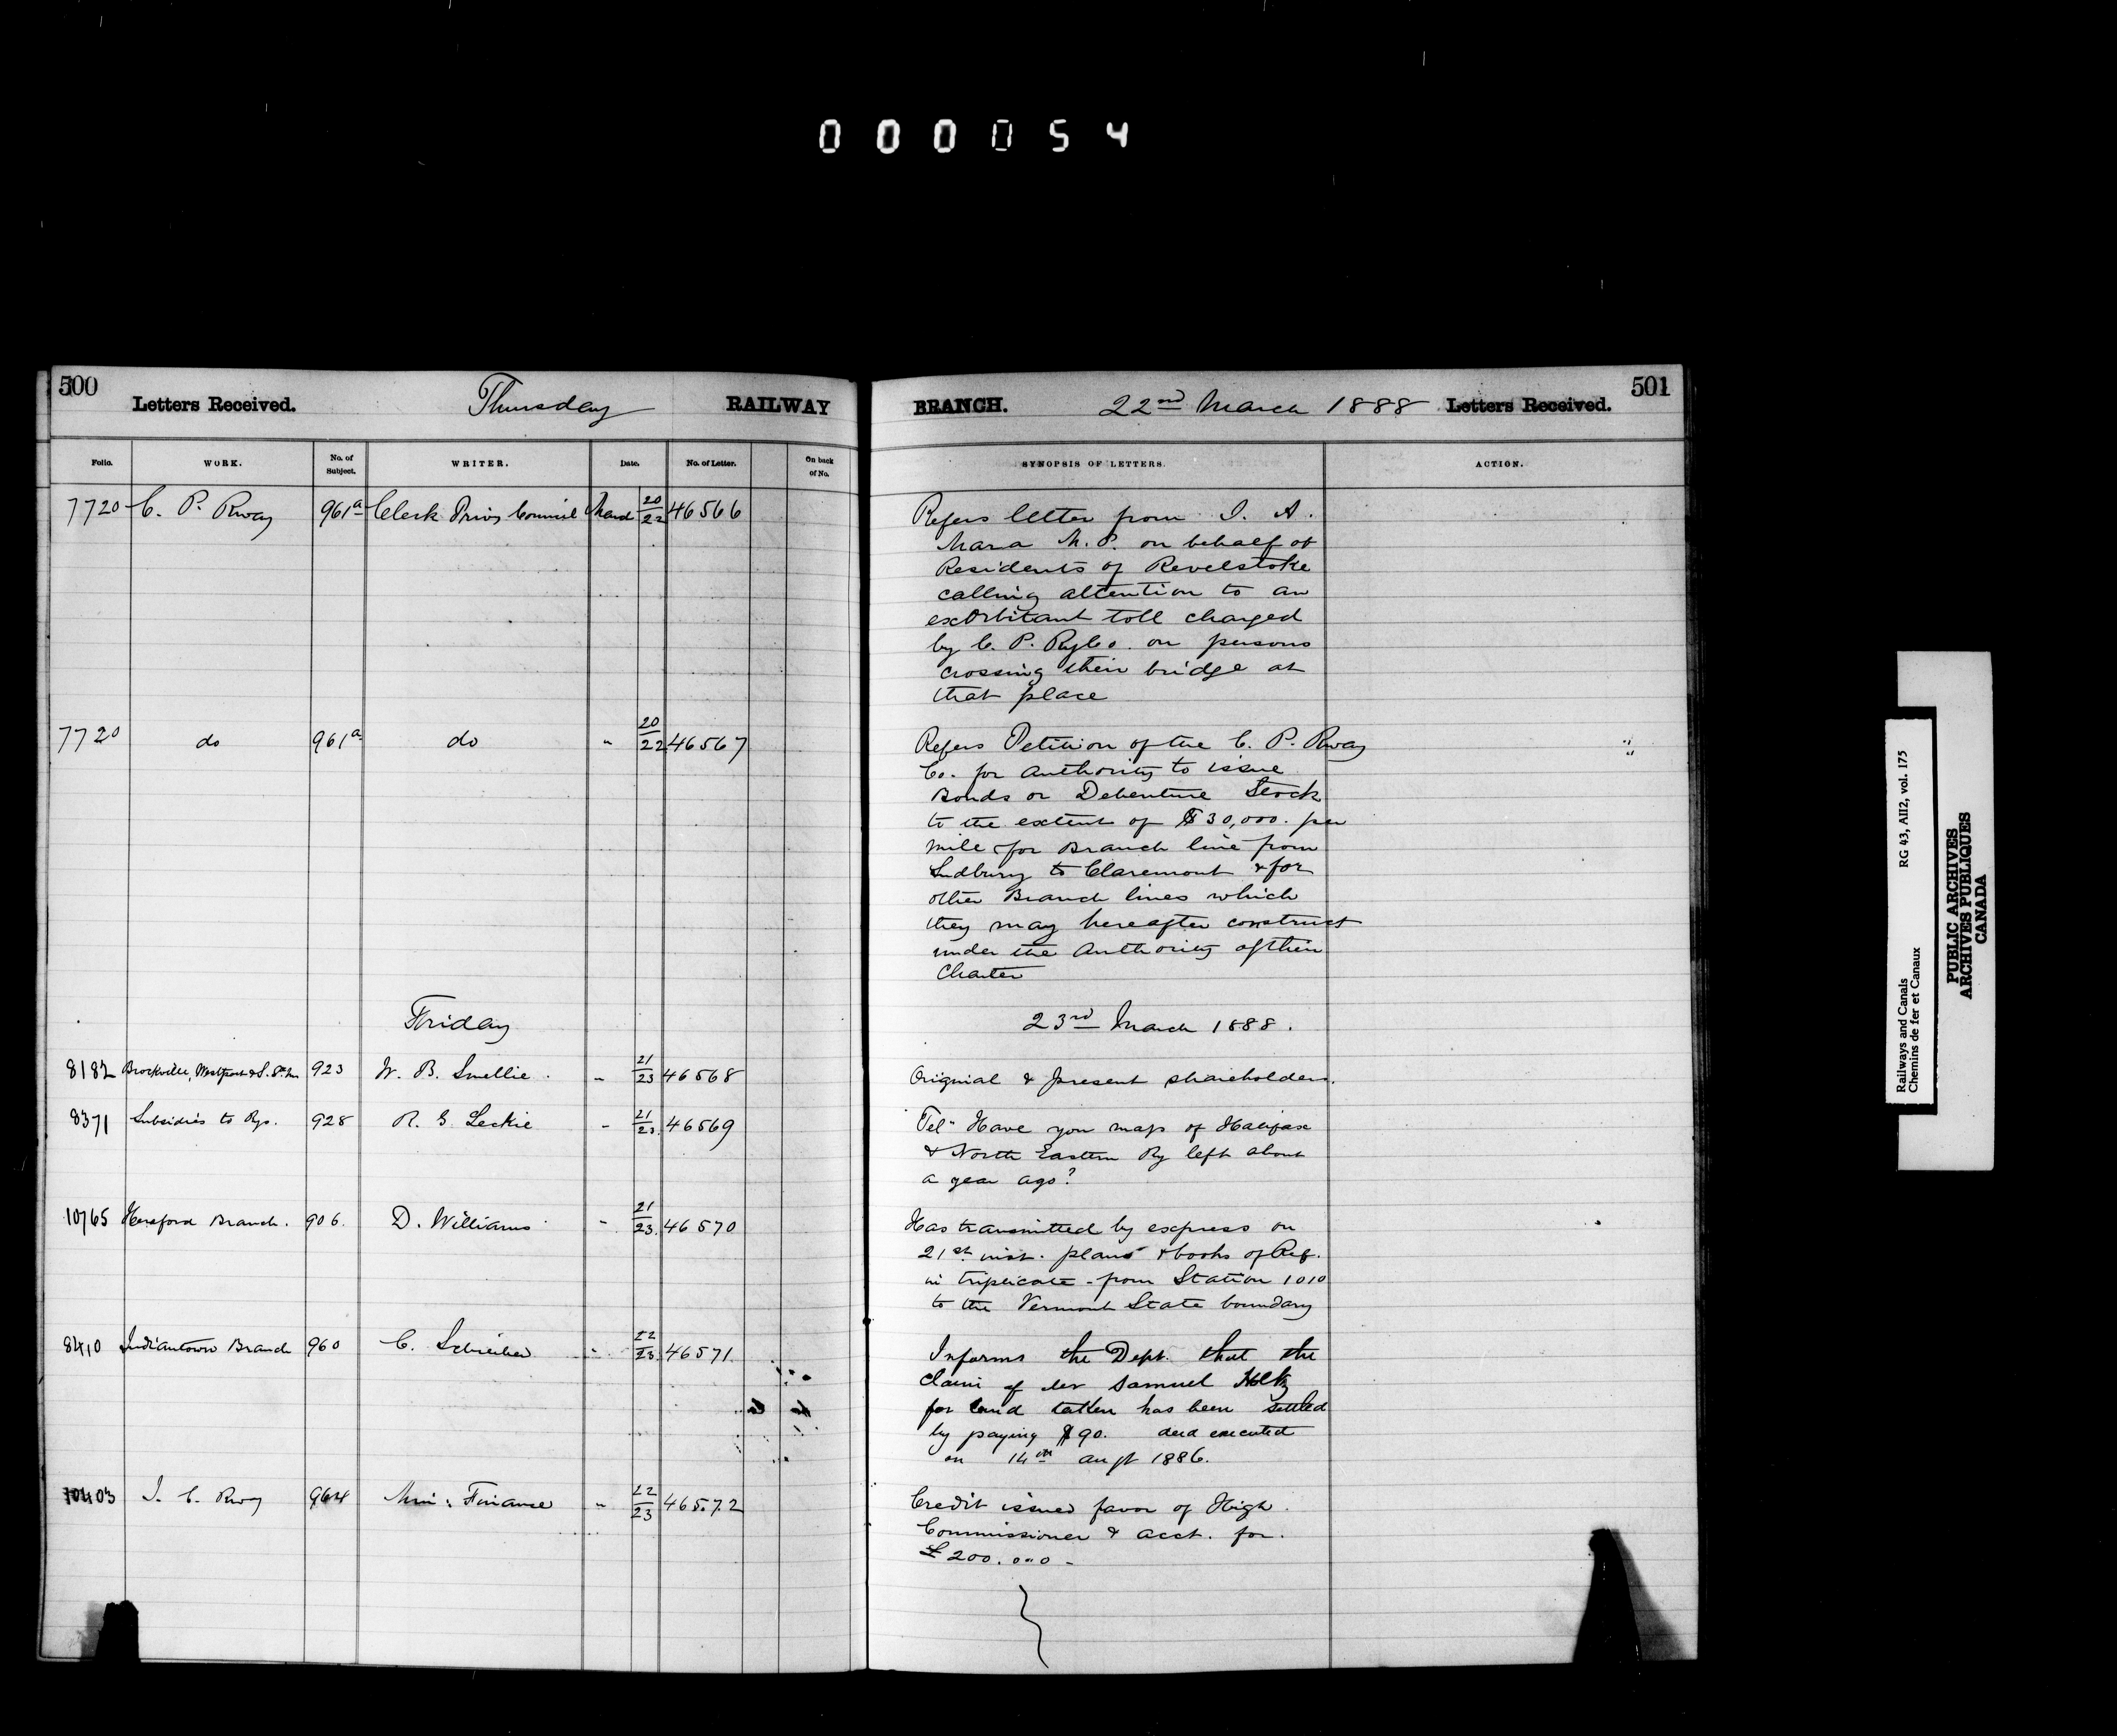 000054
500
Letters Received.
Thursday
RAILWAY
BRANCH.
22nd March 1888
Letters Received.
501
Folio.
WORK.
No. of Subject.
WRITER.
Date.
No. of Letter.
On back of No.
SYNOPSIS OF LETTERS.
ACTION.
7720 C. P. Rway 961a Clerk Privy Council March 20/22 46566
Refers letter from J. A.
Mara M.P. on behalf of
Residents of Revelstoke
calling attention to an
exorbitant toll charged
by C. P. Ry Co. on persons
crossing their bridge at
that place
7720 do 961a do " 20/22 46567
Refers Petition of the C. P. Rway
Co. for authority to issue
Bonds or Debenture Stock
to the extent of $30,000. per
mile for Branch line from
Sudbury to Claremont & for
other Branch lines which
they may hereafter construct
under the Authority of their
Charter
Friday
23rd March 1888.
8182 Brockville, Westport & S. Ste. M. 923 W. B. Smellie. " 21/23 46568
Original & present shareholders.
8371 Subsidies to Rys. 928 R. G. Leckie " 21/23 46569
Tel" Have you map of Halifax
& North Eastern Ry left about
a year ago?
10765 Hereford Branch. 906. D. Williams " 21/23. 46570
Has transmitted by express on
21st inst. plans & books of Ref.
in triplicate - from Station 1010
to the Vermont State boundary
8410 Indiantown Branch 960 C. Schreiber " 22/23. 46571.
Informs the Dept. that the
claim of Samuel
for land taken has been settled
by paying $90. deed executed
on 14th augt 1886.
10403 I. C. Rway 964 Min: Finance " 22/23 46572
Credit issued favor of High
Commissioner & acct. for.
£200.000 -
Railways and Canals RG 43, AIII2, vol. 175
Chemins de fer et Canaux
PUBLIC ARCHIVES
ARCHIVES PUBLIQUES
CANADA